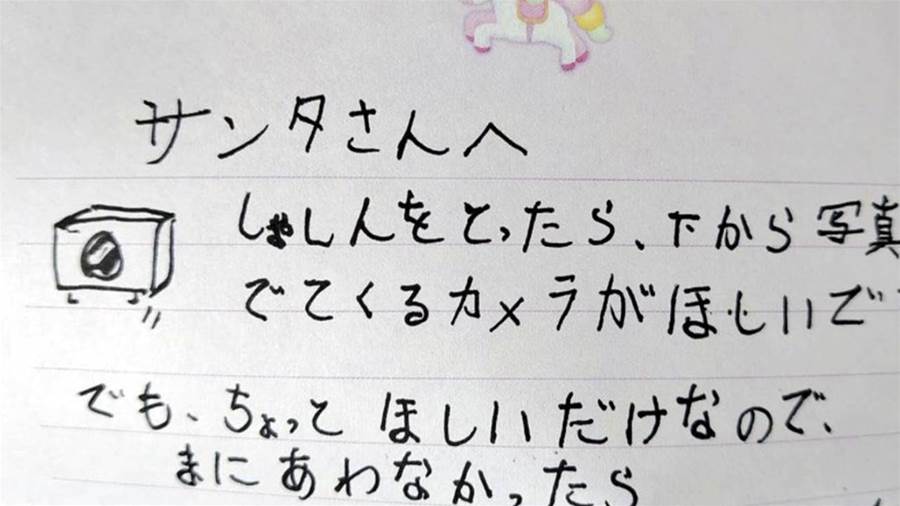 サンタさんへ
しゃしんをとったら、下から写真
でてくるカメラがほしいで
でも、ちょっとほしいだけなので、
まにあわなかったら